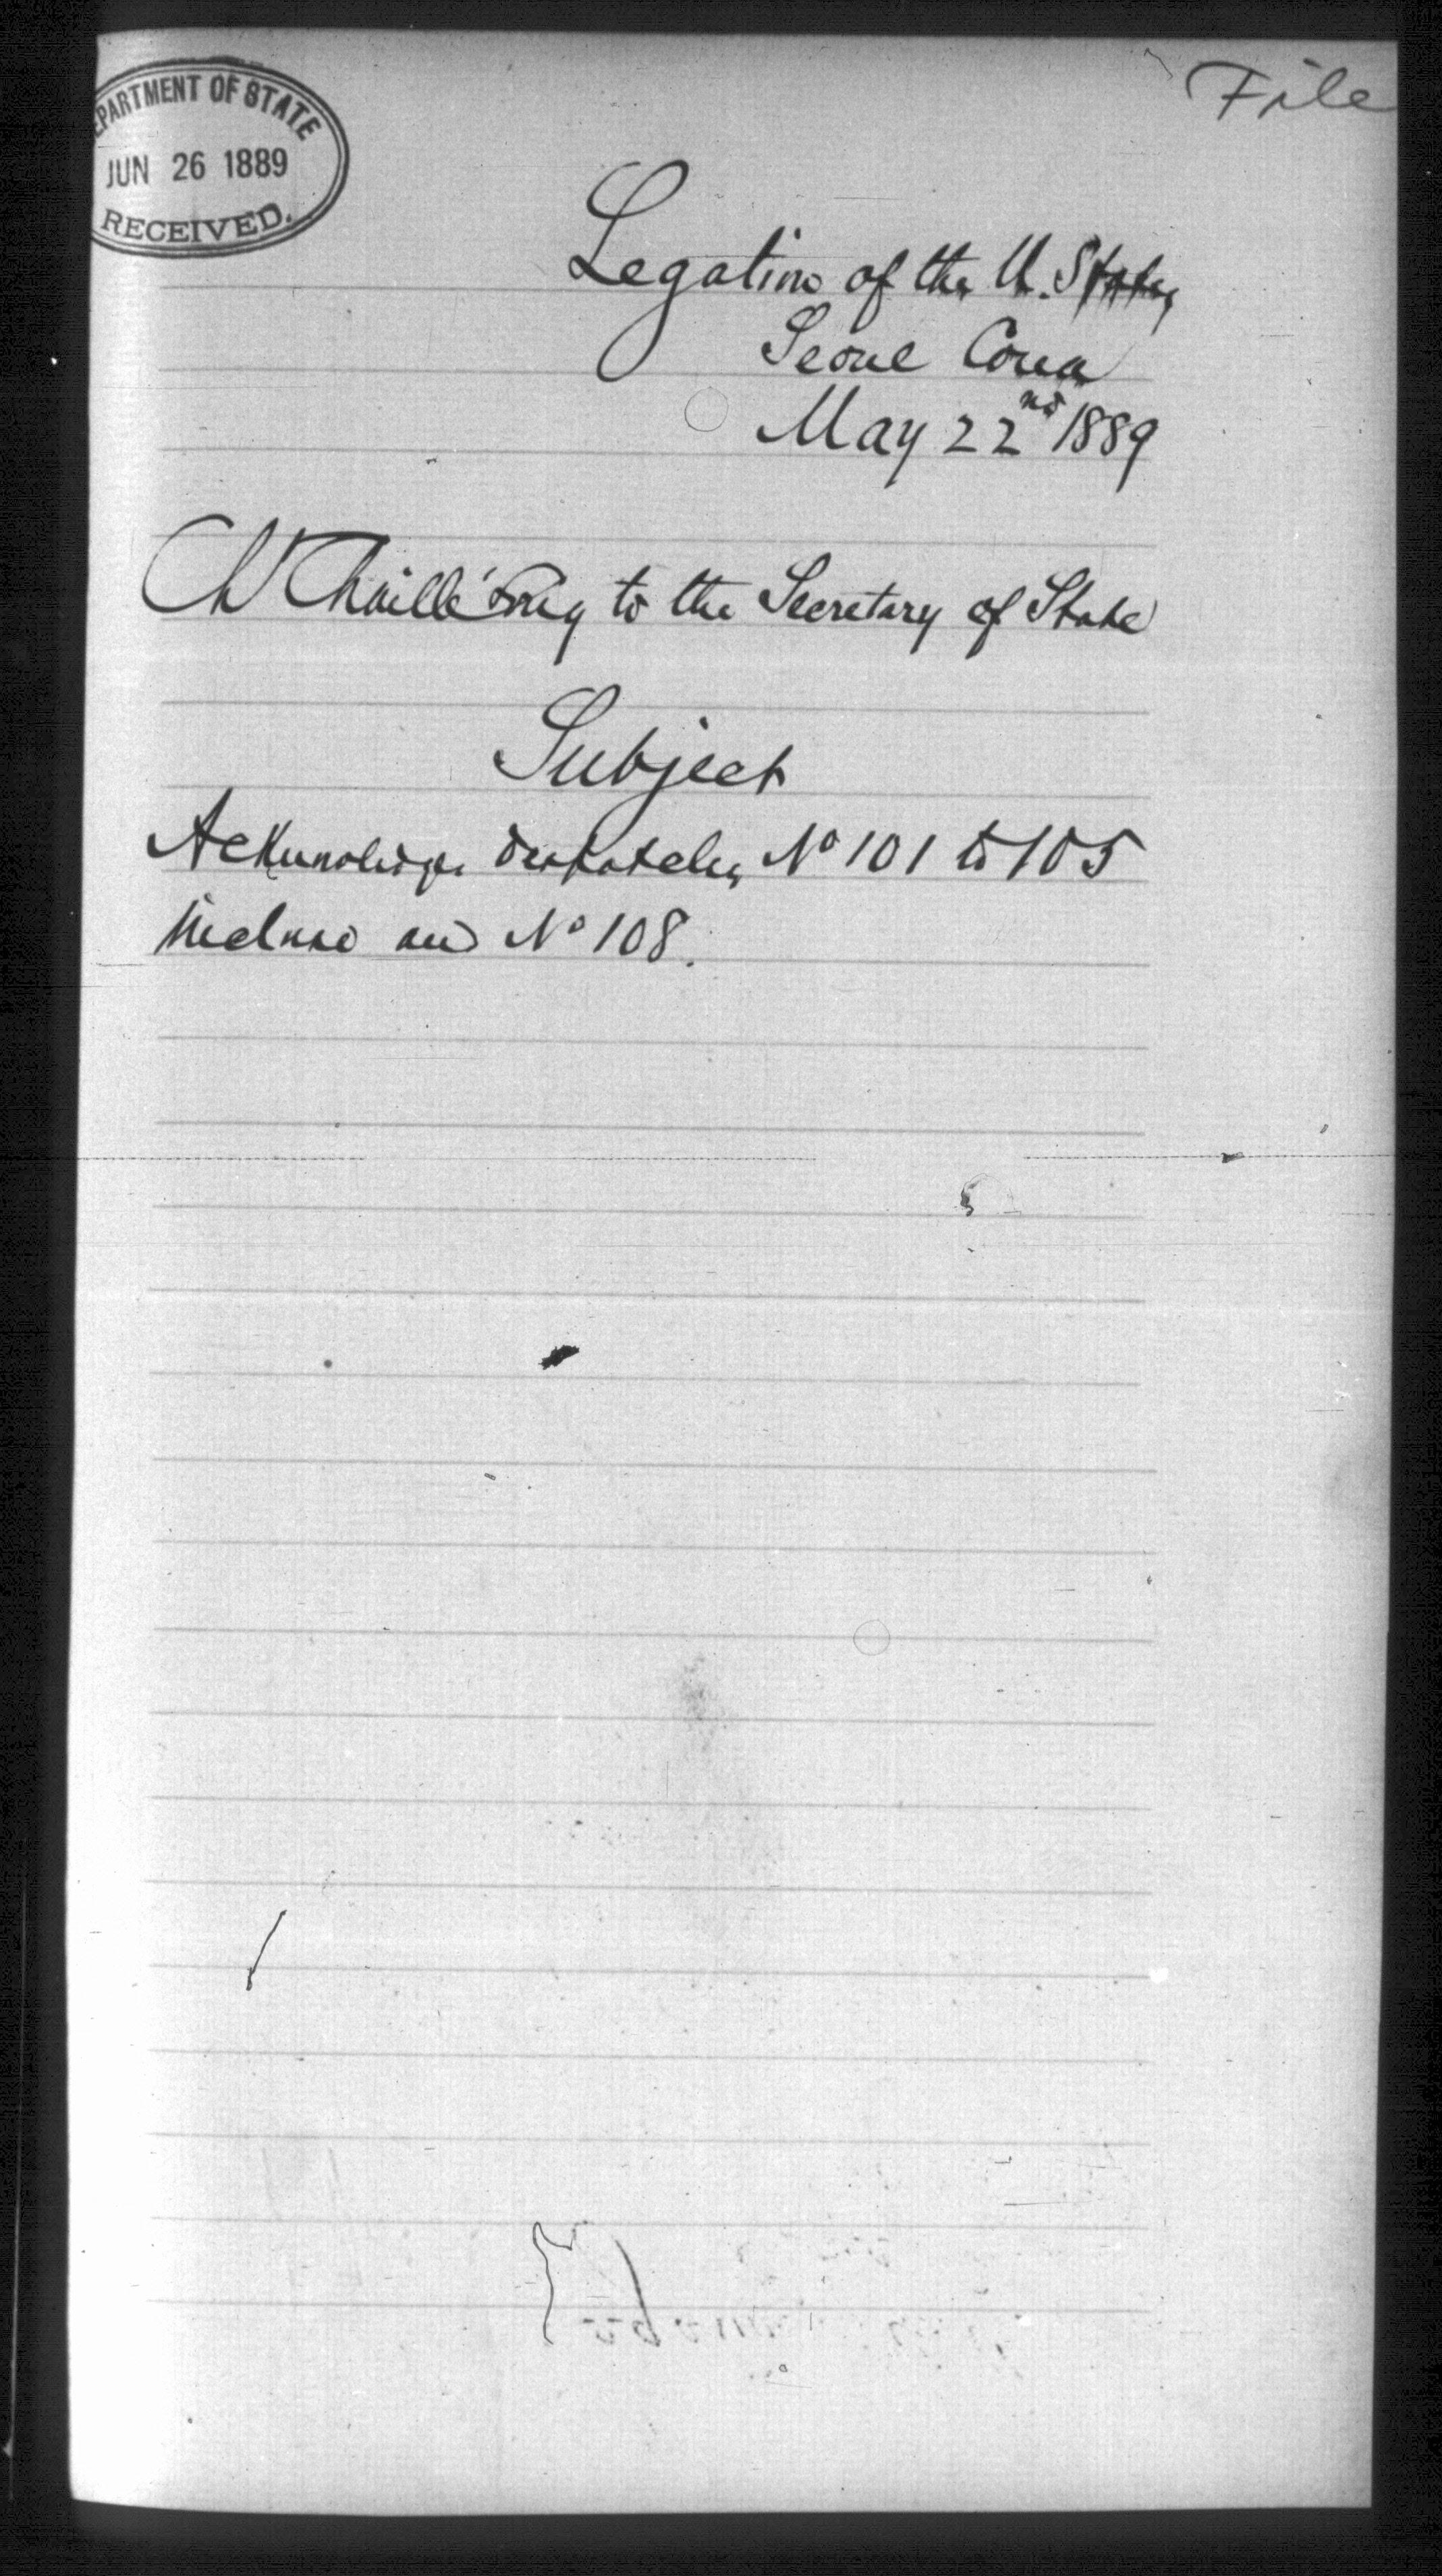 DEPARTMENT OF STATE
JUN 26 1889
RECEIVED.
File
Legation of the U. States
Seoul Corea
May 22nd 1889
Ch Chaillé Long to the Secretary of State
Subject
Acknowledge despatches No 101 to 105
incluse and No 108.